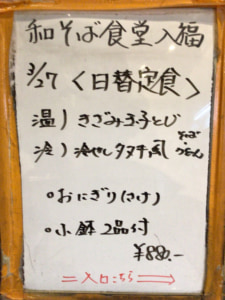 和そば食堂入福
3/27 〈日替定食〉
温) きざみ玉子とじ
冷) 冷やしタヌキ風
そば・うどん
○おにぎり(さけ)
○小鉢2品付
¥880.-
＝入口こちら⇒